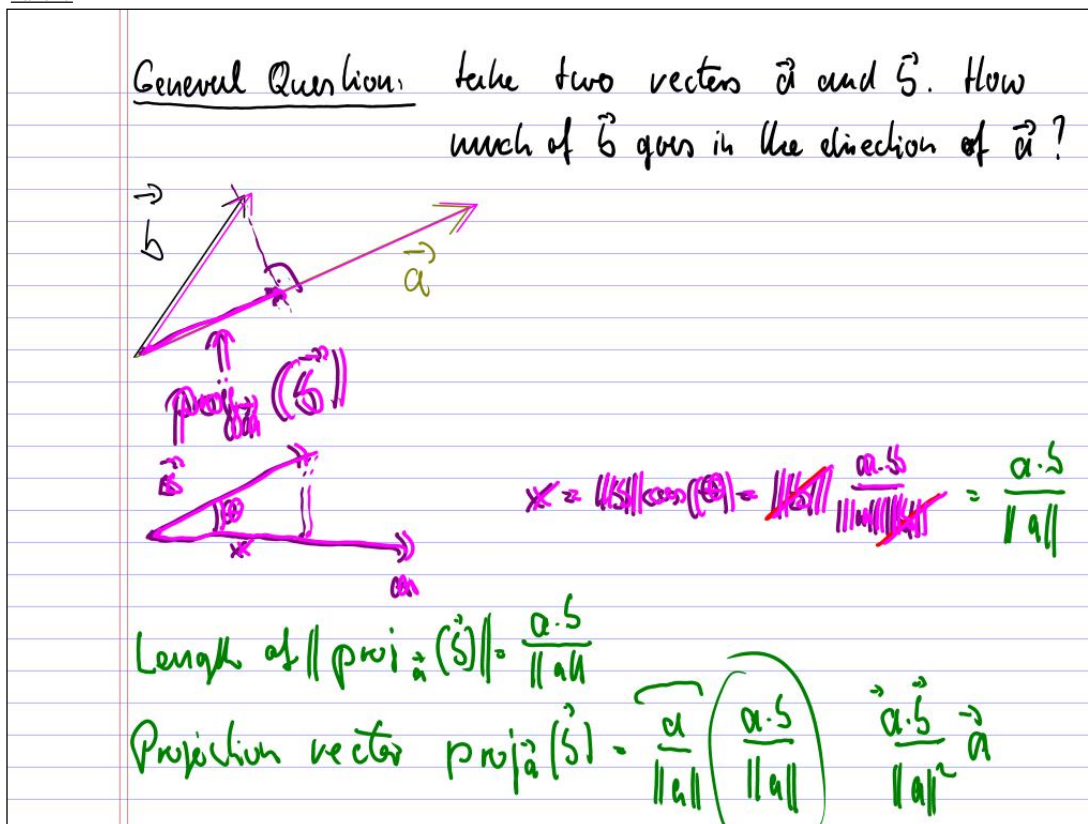 General Question: take two vectors a⃗ and b⃗. How
much of b⃗ goes in the direction of a⃗ ?
b⃗
a⃗
proj_a⃗ (b⃗)
b⃗
θ
x
a
x = ||b|| cos(θ) = ||b|| a·b / ||a|| ||b|| = a·b / ||a||
Length of || proj_a⃗ (b⃗) || = a·b / ||a||
Projection vector proj_a⃗ (b⃗) = a / ||a|| ( a·b / ||a|| ) a⃗·b⃗ / ||a||² a⃗